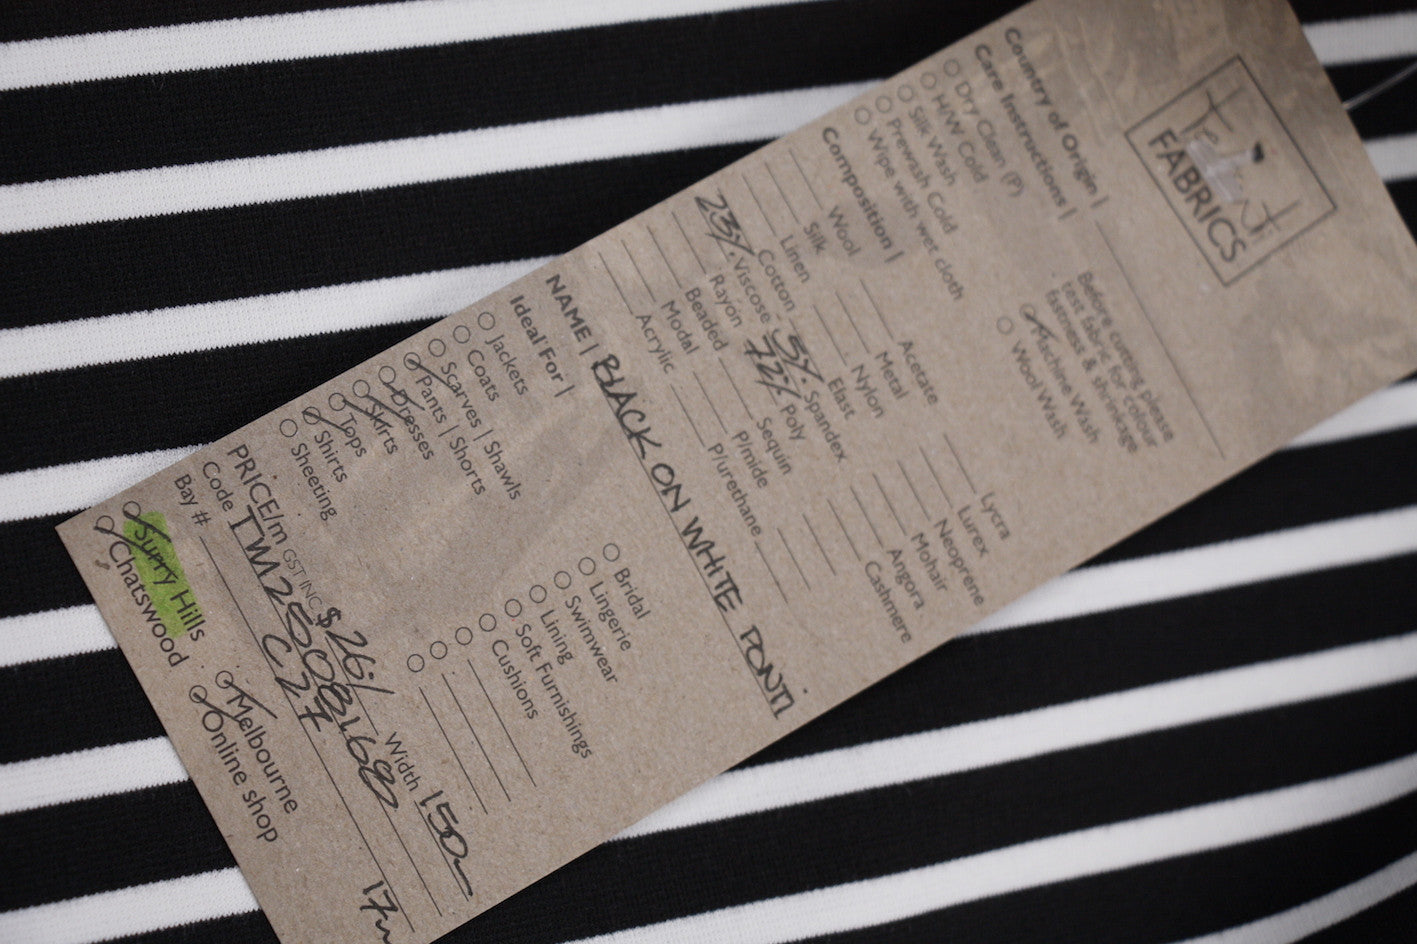 The Fabric Store
FABRICS
Country of Origin |
Care Instructions |
Dry Clean (P)
H/W Cold
Silk Wash
Prewash Cold
Wipe with wet cloth
Before cutting please
test fabric for colour
fastness & shrinkage
Machine Wash
Wool Wash
Composition |
Wool Acetate Lycra
Silk Metal Lurex
Linen Nylon Neoprene
Cotton Elast Mohair
23% Viscose 5% Spandex Angora
Rayon 72% Poly Cashmere
Beaded Sequin
Modal P/mide
Acrylic P/urethane
NAME | BLACK ON WHITE PONTI
Ideal For |
Jackets Bridal
Coats Lingerie
Scarves | Shawls Swimwear
Pants | Shorts Lining
Dresses Soft Furnishings
Skirts Cushions
Tops
Shirts
Sheeting
PRICE/m GST INC $26 Width 150
Code
Bay # C27 17m
Surry Hills Melbourne
Chatswood Online shop